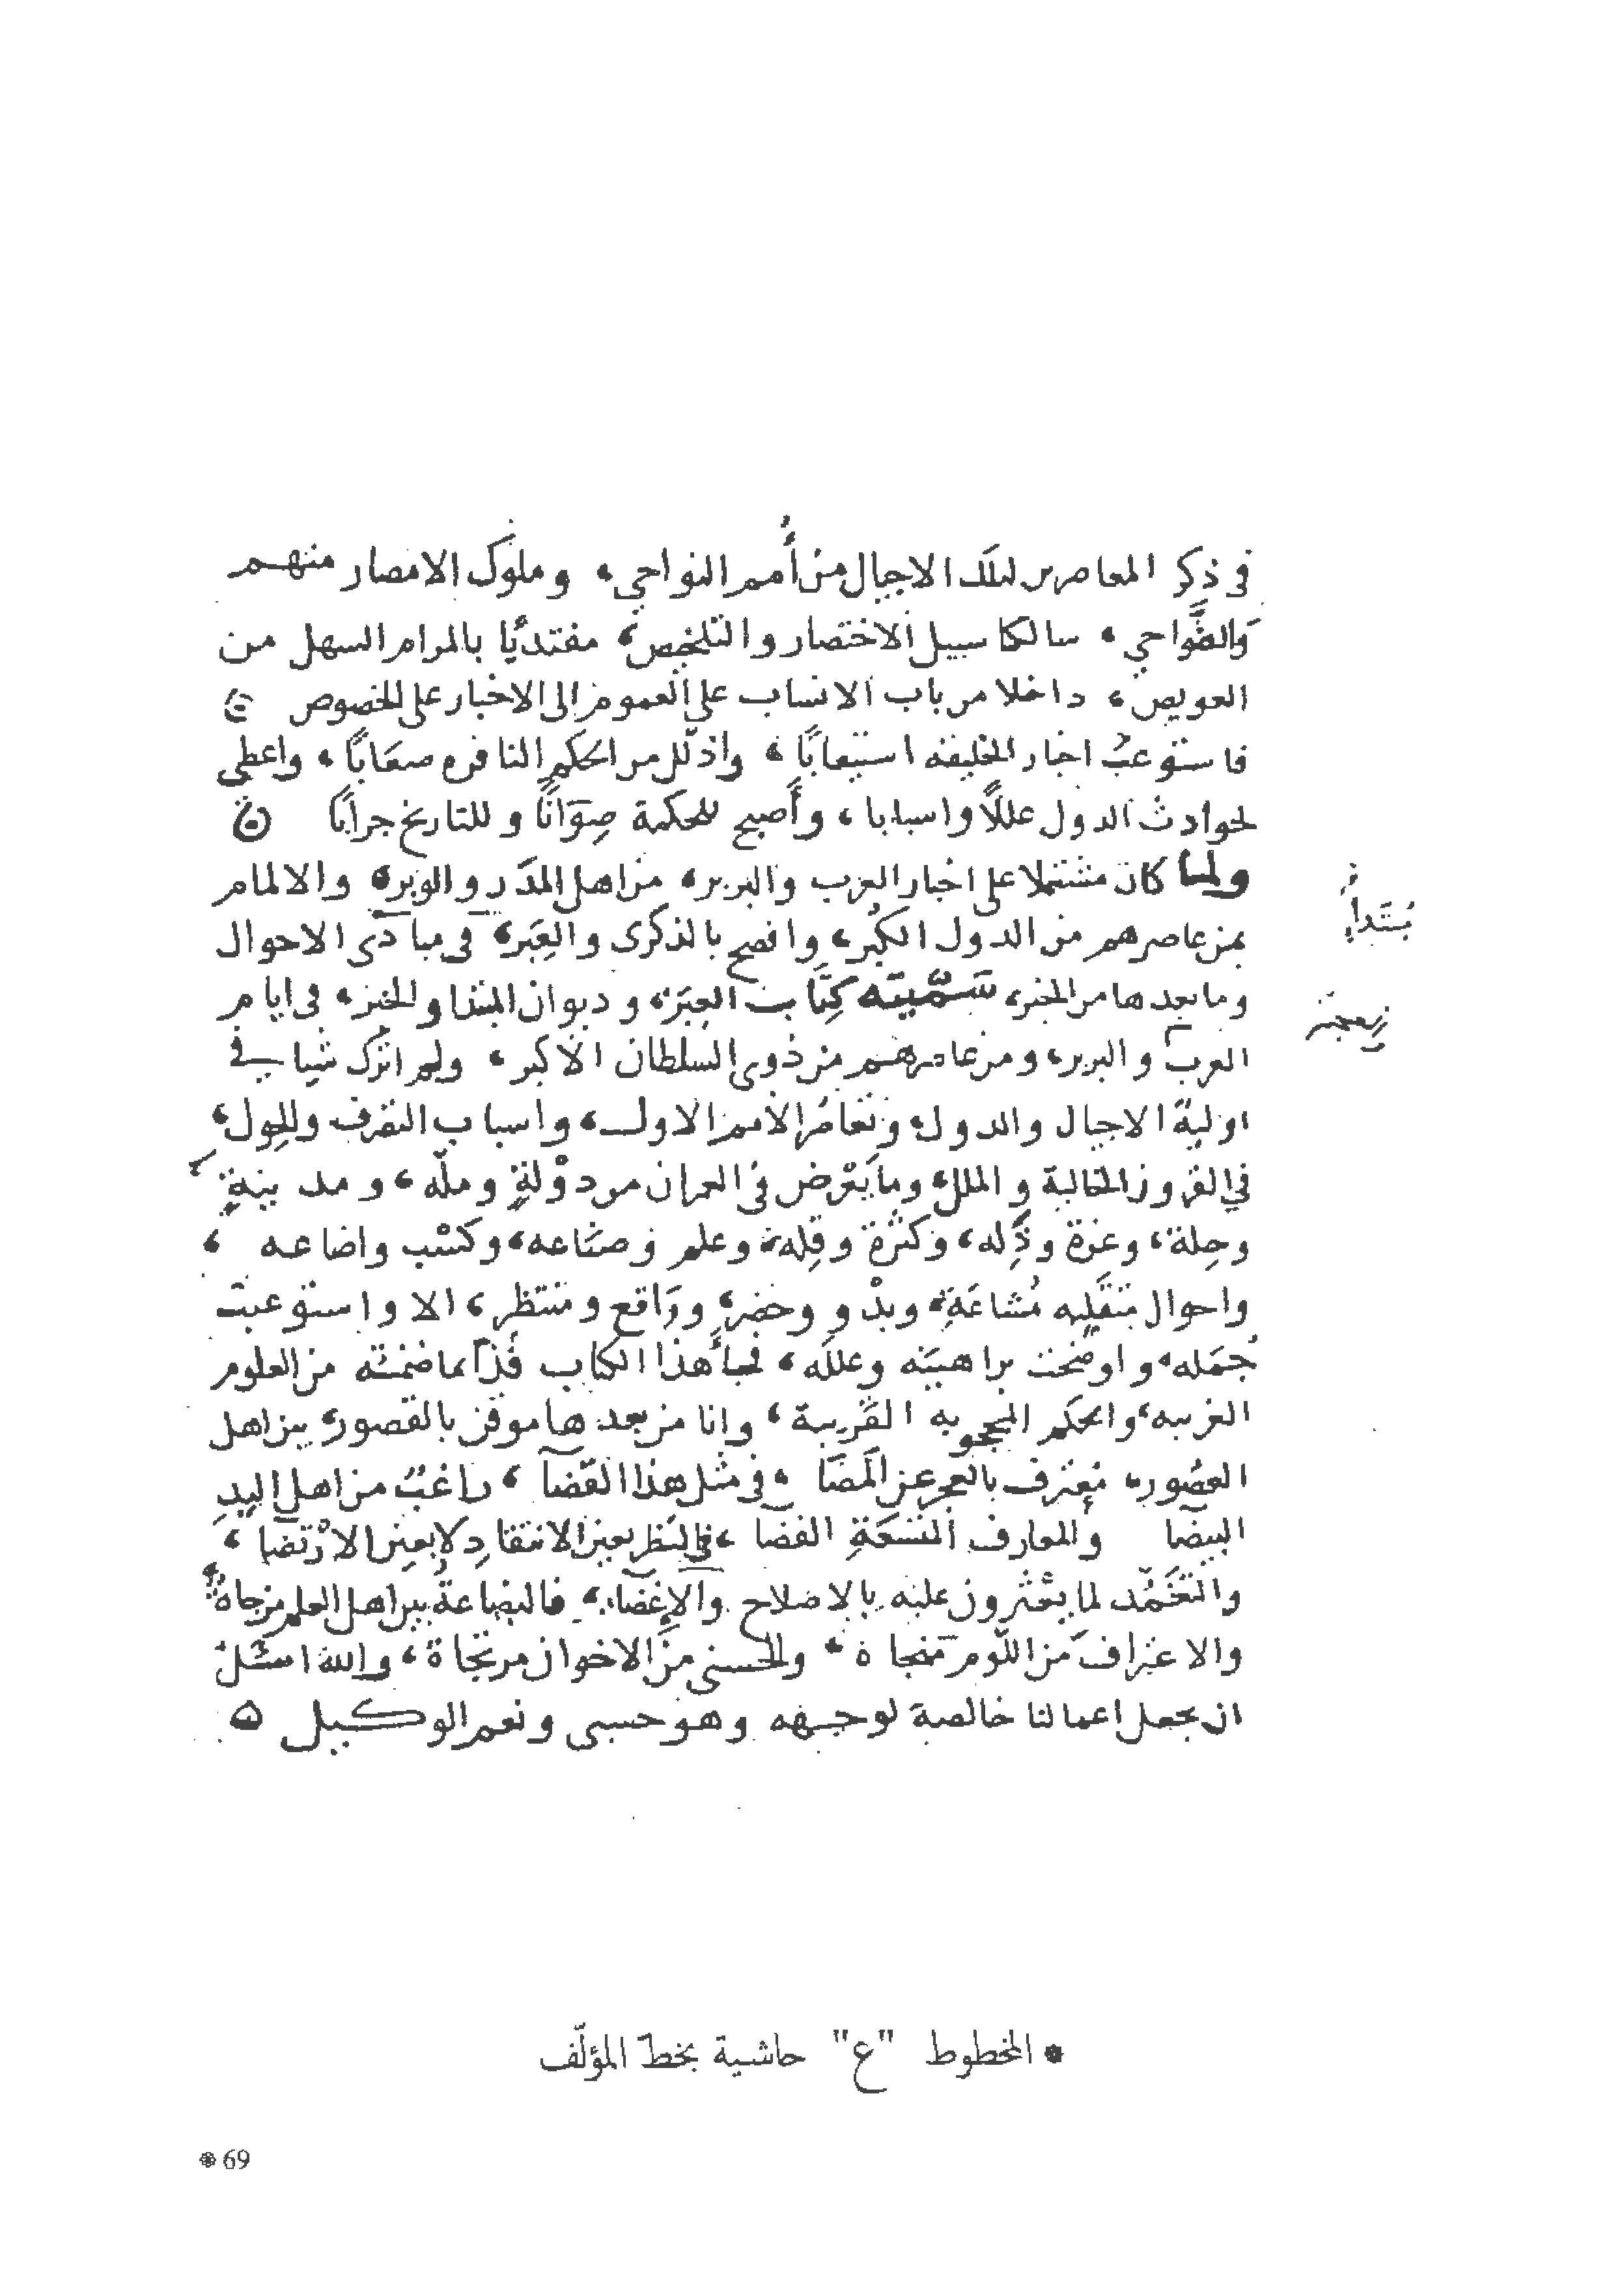 في ذكر المعاصرين لتلك الاجيال من أُمم النواحي، وملوك الامصار منهم
والضَّواحي، سالكا سبيل الاختصار والتلخيص، مفتديًا بالمرام السهل من
العويص، داخلا من باب الانساب على العموم الى الاخبار على الخصوص
فاستوعبَ اخبار الخليقه استيعابًا، وذلّل من الحكم النافره صعَابًا، واعطى
لحوادث الدول عللاً واسبابا، وأصبح للحكمة صِوَانًا وللتاريخ جرابًا
ولما كان مشتملا على اخبار العرب والبربر، من اهل المدَر والوبر، والالمام
بمن عاصرهم من الدول الكُبَر، وافصح بالذكرى والعِبَر، في مبادئ الاحوال
بُتَدأ
وما بعدها من الخبر، سَمَّيته كِتَاب العِبَر، وديوان المبتدا والخبر، في ايام
العرب والبربر، ومن عاصرهم من ذوي السلطان الاكبر، ولم اترك شيا في
اولية الاجيال والدول، وتعاصُر الامم الاول، واسباب التصرف والحِوَل،
في القرون الخالية والملل، وما يَعْرض في العمران من دوْلةٍ وملّه، ومدينةٍ
وحِلة، وعزة وذِّله، وكثرة وقِله، وعلم وصنَاعه، وكسْب واضاعه،
واحوال متقَلِبه مُشاعَةٍ، وبدْو وحضر، ووَاقع ومنتظر، الا واستوعبت
جُمَله، واوضحت براهينه وعلَله، فجاء هذا الكتاب فذًّا بما ضمنته من العلوم
الغريبه، والحكم المحجوبه القَريبة، وانا من بعدها موقن بالقصور، بين اهل
العصُور، مُعترف بالعجز عن المضَا، في مثل هذا القضَا، راغبٌ من اهل اليدِ
البيضَا والمعارف المتَّسَعَةِ الفضَا، في النَظر بعين الانتقادِ لا بعين الارْتضَا،
والتغَمُّد لما يعْثرون عليه بالاصلاح والإغضَا، فالبضاعةُ بين اهل العلم مزجاةٌ،
والاعتراف من اللَّوم مَنجاة، والحسنى من الاخوان مرتجَاة، والله اسئل
ان يجعل اعمالنا خالصة لوجهه وهو حسبي ونعم الوكيل
* المخطوط "ع" حاشية بخطّ المؤلّف
* 69